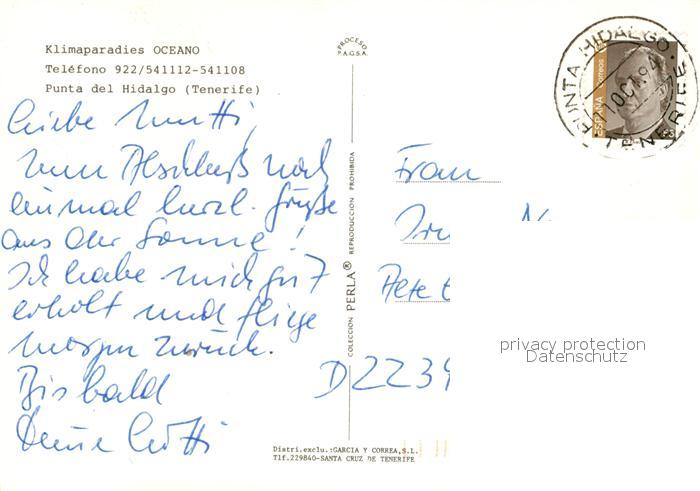 Klimaparadies OCEANO
Teléfono 922/541112-541108
Punta del Hidalgo (Tenerife)
Liebe Mutti,
zum Abschluß noch
einmal herzl. Grüße
aus der Sonne!
Ich habe mich gut
erholt und fliege
morgen zurück.
Bis bald
Deine
PROCESO
P.A.G.S.A.
COLECCION PERLA® REPRODUCCION PROHIBIDA
PUNTA HIDALGO
10 OCT. 94
TENERIFE
ESPAÑA correos
Frau
D 2239
privacy protection
Datenschutz
Distri.exclu.:GARCIA Y CORREA,S.L.
Tlf.229840-SANTA CRUZ DE TENERIFE